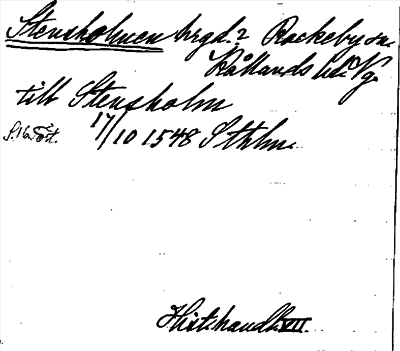 Stensholmen hrgd.? Rackeby sn.
Kållands hd. Vg.
till Stensholm
17/10 1548 Sthlm.
Hist. handl. VII.